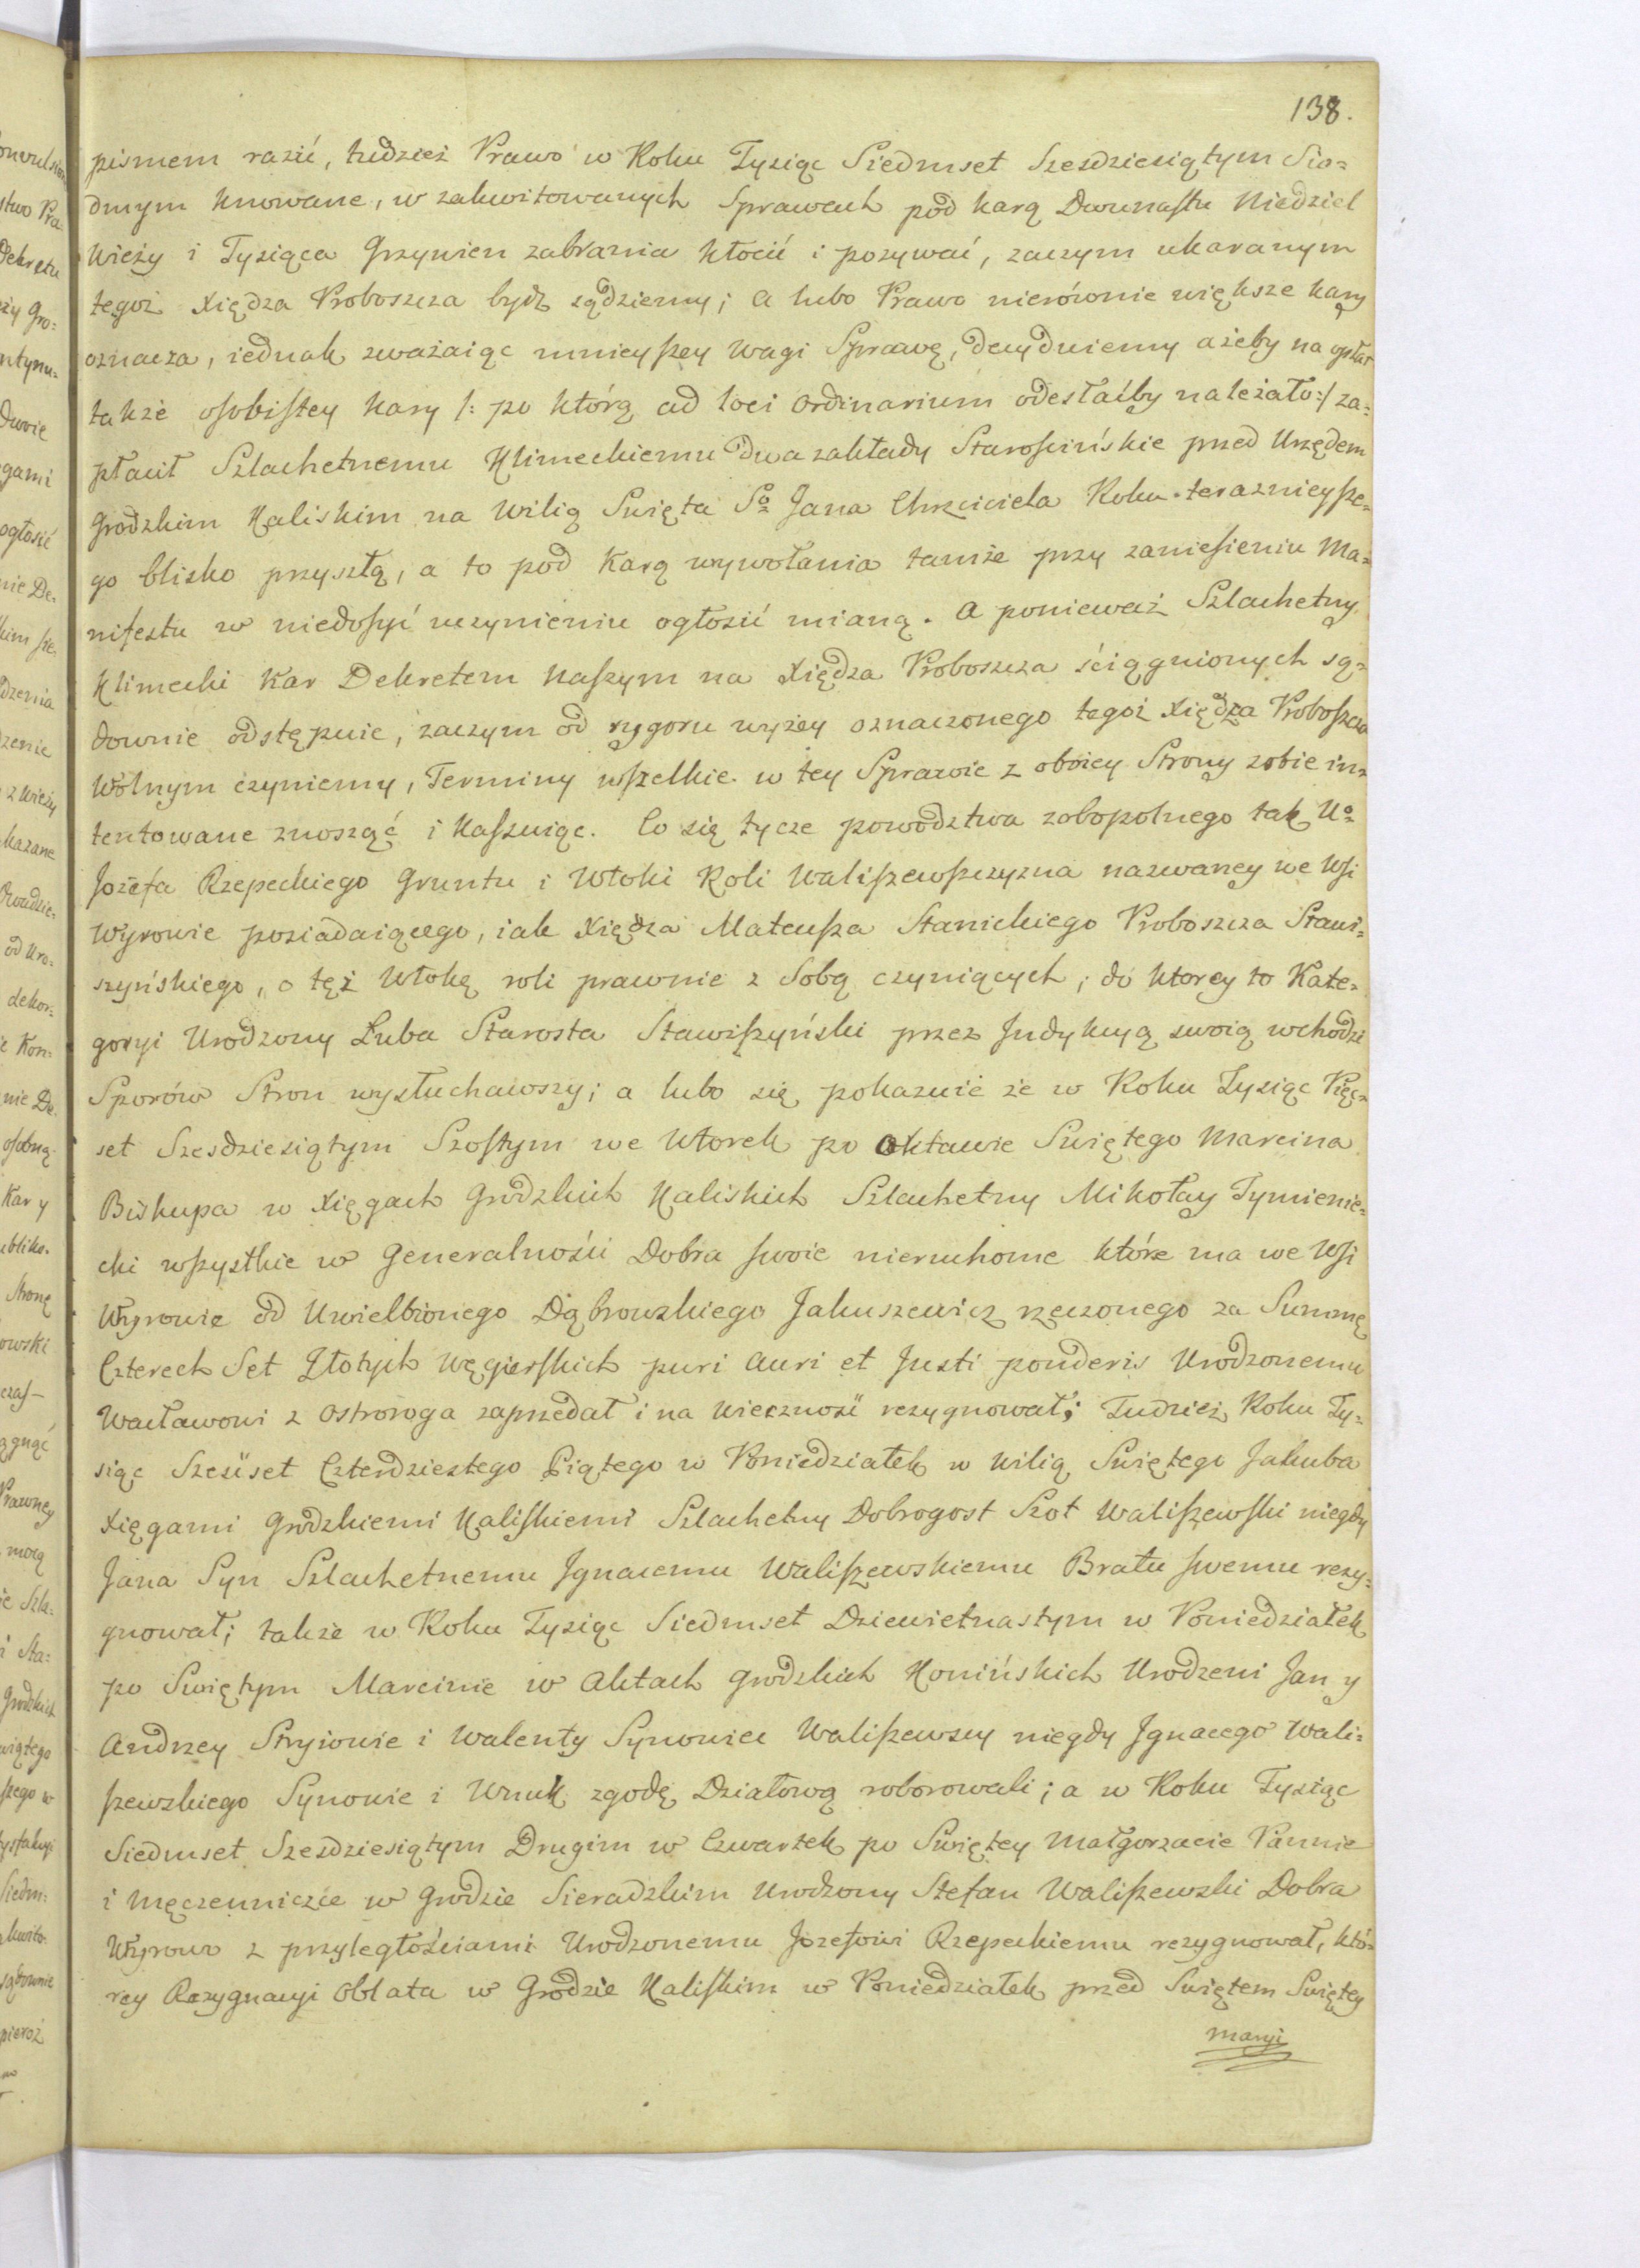 138.
pismem razić, tudzież Prawo w Roku Tysiąc Siedmset Szesdziesiątym Sio=
dmym knowane, w zakwitowanych Sprawach pod karą Dwunastu Niedziel
Wieży i Tysiąca Grzywien zabrania kłocić i pozywać, zaczym ukaranym
tegoż Xiędza Proboszcza bydź sądziemy; a lubo Prawo nierównie większe kary
oznacza, iednak zważaiąc mnieyszey wagi Sprawę, decyduiemy ażeby na
także osobistey kary /: po którą ad loci ordinarium odesłaćby należało:/ za=
płacił Szlachetnemu Klimeckiemu dwa zakłady Starościńskie przed Urzędem
Grodzkim Kaliskim na Wilią Swięta Sgo Jana Chrzciciela Roku teraznieysze=
go blisko przyszłą, a to pod karą wywołania tamże przy zaniesieniu Ma=
nifestu w niedosyć uczynieniu ogłosić mianą. A ponieważ Szlachetny
Klimecki kar Dekretem Naszym na Xiędza Proboszcza ściągnionych są=
downie odstępuie, zaczym od rygoru wyżey oznaczonego tegoż Xiędza Proboszcza
Wolnym czyniemy, Terminy wszelkie w tey Sprawie z oboiey Strony sobie in=
tentowane znosząć i Kassuiąc. Co się tycze powodztwa zobopolnego tak Uo
Jozefa Rzepeckiego Gruntu i Włoki Roli Waliszewszczyzna nazwaney we Wsi
Wyrowie posiadaiącego, iak Xiędza Mateusza Stanickiego Proboszcza Stawi=
szyńskiego, o też Włokę roli prawnie z Sobą czyniących; do ktorey to Kate=
goryi Urodzony Łuba Starosta Stawiszyński przez Indykcyą swoią wchodzi
Sporów Stron wysłuchawszy; a lubo się pokazuie że w Roku Tysiąc Pięć=
set Szesdziesiątym Szostym we Wtorek po Oktawie Swiętego Marcina
Biskupa w Xięgach Grodzkich Kaliskich Szlachetny Mikołay Tymienie=
cki wszystkie w Generalności Dobra swoie nieruchome które ma we Wsi
Wyrowie od Uwielbionego Dąbrowskiego Jakuszewicz rzeczonego za Summę
Czterech Set Złotych węgierskich puri auri et Justi ponderis Urodzonemu
Wacławowi z Ostroroga zaprzedał i na wieczność rezygnował; Tudzież Roku Ty=
siąc Szescset Czterdziestego Piątego w Poniedziałek w Wilią Swiętego Jakuba
Xięgami Grodzkiemi Kaliskiemi Szlachetny Dobrogost Szot Waliszewski niegdy
Jana Syn Szlachetnemu Ignacemu Waliszewskiemu Bratu swemu rezy=
gnował; także w Roku Tysiąc Siedmset Dziewietnastym w Poniedziałek
po Swiętym Marcinie w Aktach Grodzkich Konińskich Urodzeni Jan y
Andrzey Stryiowie i Walenty Synowiec Waliszewscy niegdy Ignacego Wali=
szewskiego Synowie i Wnuk zgodę Działową roborowali; a w Roku Tysiąc
Siedmset Szesdziesiątym Drugim w Czwartek po Swiętey Małgorzacie Pannie
i Męczenniczce w Grodzie Sieradzkim Urodzony Stefan Waliszewski Dobra
Wyrowo z przyległościami Urodzonemu Jozefowi Rzepeckiemu rezygnował, któ=
rey Rezygnacyi Oblata w Grodzie Kaliskim w Poniedziałek przed Swiętem Swiętey
Maryi